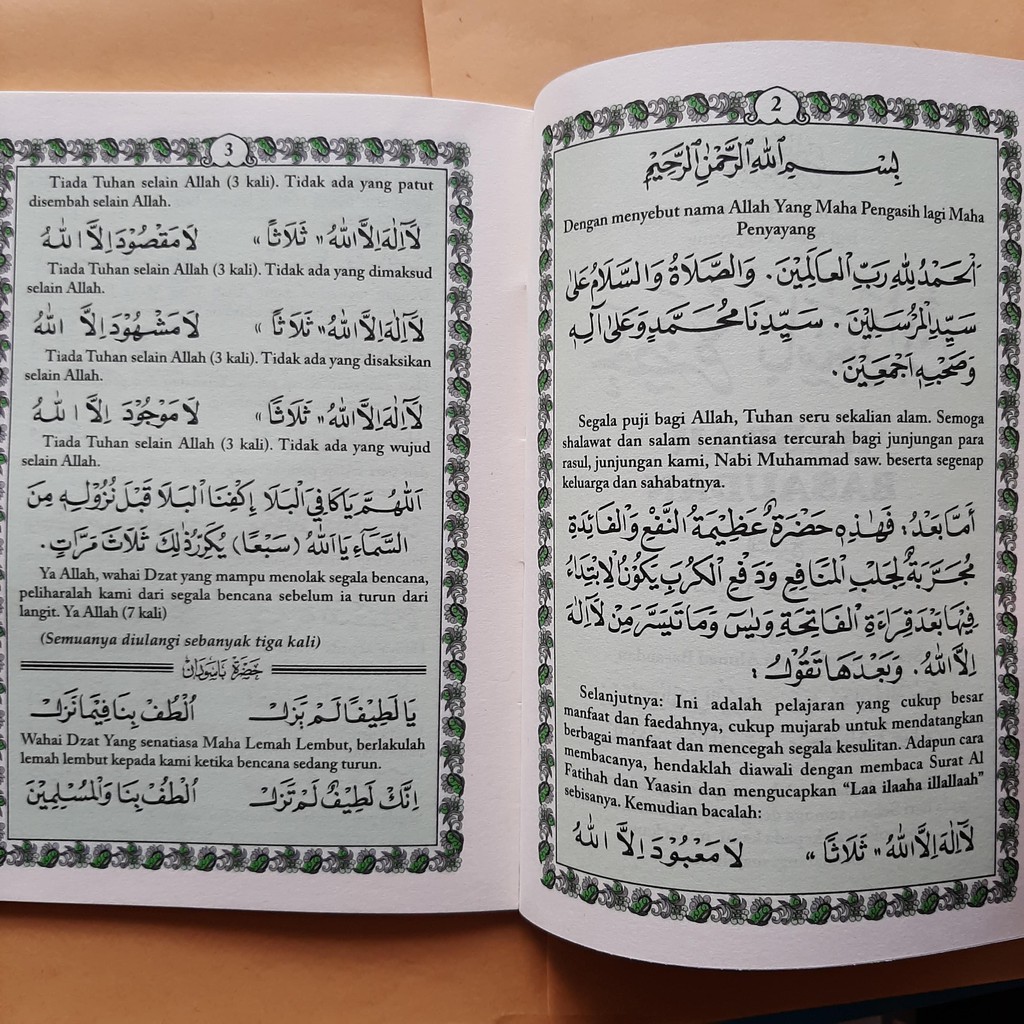 2
بِسْمِ اللهِ الرَّحْمٰنِ الرَّحِيْمِ
Dengan menyebut nama Allah Yang Maha Pengasih lagi Maha
Penyayang
اَلْحَمْدُ لِلّٰهِ رَبِّ الْعَالَمِيْنَ. وَالصَّلَاةُ وَالسَّلَامُ عَلٰى
سَيِّدِ الْمُرْسَلِيْنَ. سَيِّدِنَا مُحَمَّدٍ وَعَلٰى اٰلِهٖ
وَصَحْبِهٖ اَجْمَعِيْنَ.
Segala puji bagi Allah, Tuhan seru sekalian alam. Semoga
shalawat dan salam senantiasa tercurah bagi junjungan para
rasul, junjungan kami, Nabi Muhammad saw. beserta segenap
keluarga dan sahabatnya.
أَمَّا بَعْدُ: فَهٰذِهٖ حَضْرَةٌ عَظِيْمَةُ النَّفْعِ وَالْفَائِدَةِ
مُجَرَّبَةٌ لِجَلْبِ الْمَنَافِعِ وَدَفْعِ الْكُرَبِ يَكُوْنُ الْاِبْتِدَاءُ
فِيْهَا بَعْدَ قِرَاءَةِ الْفَاتِحَةِ وَيٰسٓ وَمَا تَيَسَّرَ مِنْ لَآاِلٰهَ
اِلَّا اللهُ. وَبَعْدَهَا تَقُوْلُ:
Selanjutnya: Ini adalah pelajaran yang cukup besar
manfaat dan faedahnya, cukup mujarab untuk mendatangkan
berbagai manfaat dan mencegah segala kesulitan. Adapun cara
membacanya, hendaklah diawali dengan membaca Surat Al
Fatihah dan Yaasin dan mengucapkan “Laa ilaaha illallaah”
sebisanya. Kemudian bacalah:
لَآاِلٰهَ اِلَّا اللهُ «ثَلَاثًا» لَا مَعْبُوْدَ اِلَّا اللهُ
3
Tiada Tuhan selain Allah (3 kali). Tidak ada yang patut
disembah selain Allah.
لَآاِلٰهَ اِلَّا اللهُ «ثَلَاثًا» لَا مَقْصُوْدَ اِلَّا اللهُ
Tiada Tuhan selain Allah (3 kali). Tidak ada yang dimaksud
selain Allah.
لَآاِلٰهَ اِلَّا اللهُ «ثَلَاثًا» لَا مَشْهُوْدَ اِلَّا اللهُ
Tiada Tuhan selain Allah (3 kali). Tidak ada yang disaksikan
selain Allah.
لَآاِلٰهَ اِلَّا اللهُ «ثَلَاثًا» لَا مَوْجُوْدَ اِلَّا اللهُ
Tiada Tuhan selain Allah (3 kali). Tidak ada yang wujud
selain Allah.
اَللّٰهُمَّ يَا كَافِيَ الْبَلَا اِكْفِنَا الْبَلَا قَبْلَ نُزُوْلِهٖ مِنَ
السَّمَآءِ يَا اَللهُ (سَبْعًا) يُكَرَّرُ ذٰلِكَ ثَلَاثَ مَرَّاتٍ.
Ya Allah, wahai Dzat yang mampu menolak segala bencana,
peliharalah kami dari segala bencana sebelum ia turun dari
langit. Ya Allah (7 kali)
(Semuanya diulangi sebanyak tiga kali)
حضرة باسودان
يَا لَطِيْفًا لَمْ يَزَلْ اُلْطُفْ بِنَا فِيْمَا نَزَلْ
Wahai Dzat Yang senatiasa Maha Lemah Lembut, berlakulah
lemah lembut kepada kami ketika bencana sedang turun.
اِنَّكَ لَطِيْفٌ لَمْ تَزَلْ اُلْطُفْ بِنَا وَالْمُسْلِمِيْنَ